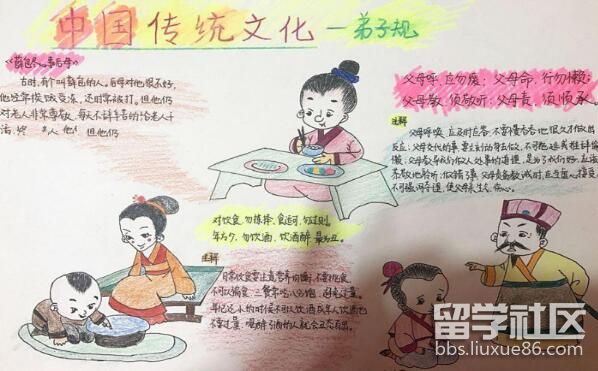 中国传统文化—弟子规
《薛包冬心事后母》
古时,有个叫薛包的人。后母对他很不好,
他经常挨饿受冻,还时常被打。但他仍
对老人非常尊敬,每天不辞辛苦的给老人干
活,
人 他 但他仍
父母呼,应勿缓;父母命,行勿懒;
父母教,须敬听;父母责,须顺承。
注解
父母呼唤,应及时应答,不要慢吞吞地很久才做出
反应;父母交代的事,要立刻动身去做,不可拖延或推辞偷
懒;父母教导我们做人处事的道理,是为了我们好,应该
恭敬地聆听;做错了事,父母责备教诫时,应当虚心接受,
不可强词夺理,使父母生气、伤心。
对饮食,勿拣择,食适可,勿过则。
年方少,勿饮酒,饮酒醉,最为丑。
注解
日常饮食要注意营养均衡,不要挑食,
不可以偏食,三餐常吃八分饱,
年纪还小的时候不可以饮酒,成年人饮酒也
不要过量,喝醉酒的人就会丑态百出。
留学社区
bbs.liuxue86.com